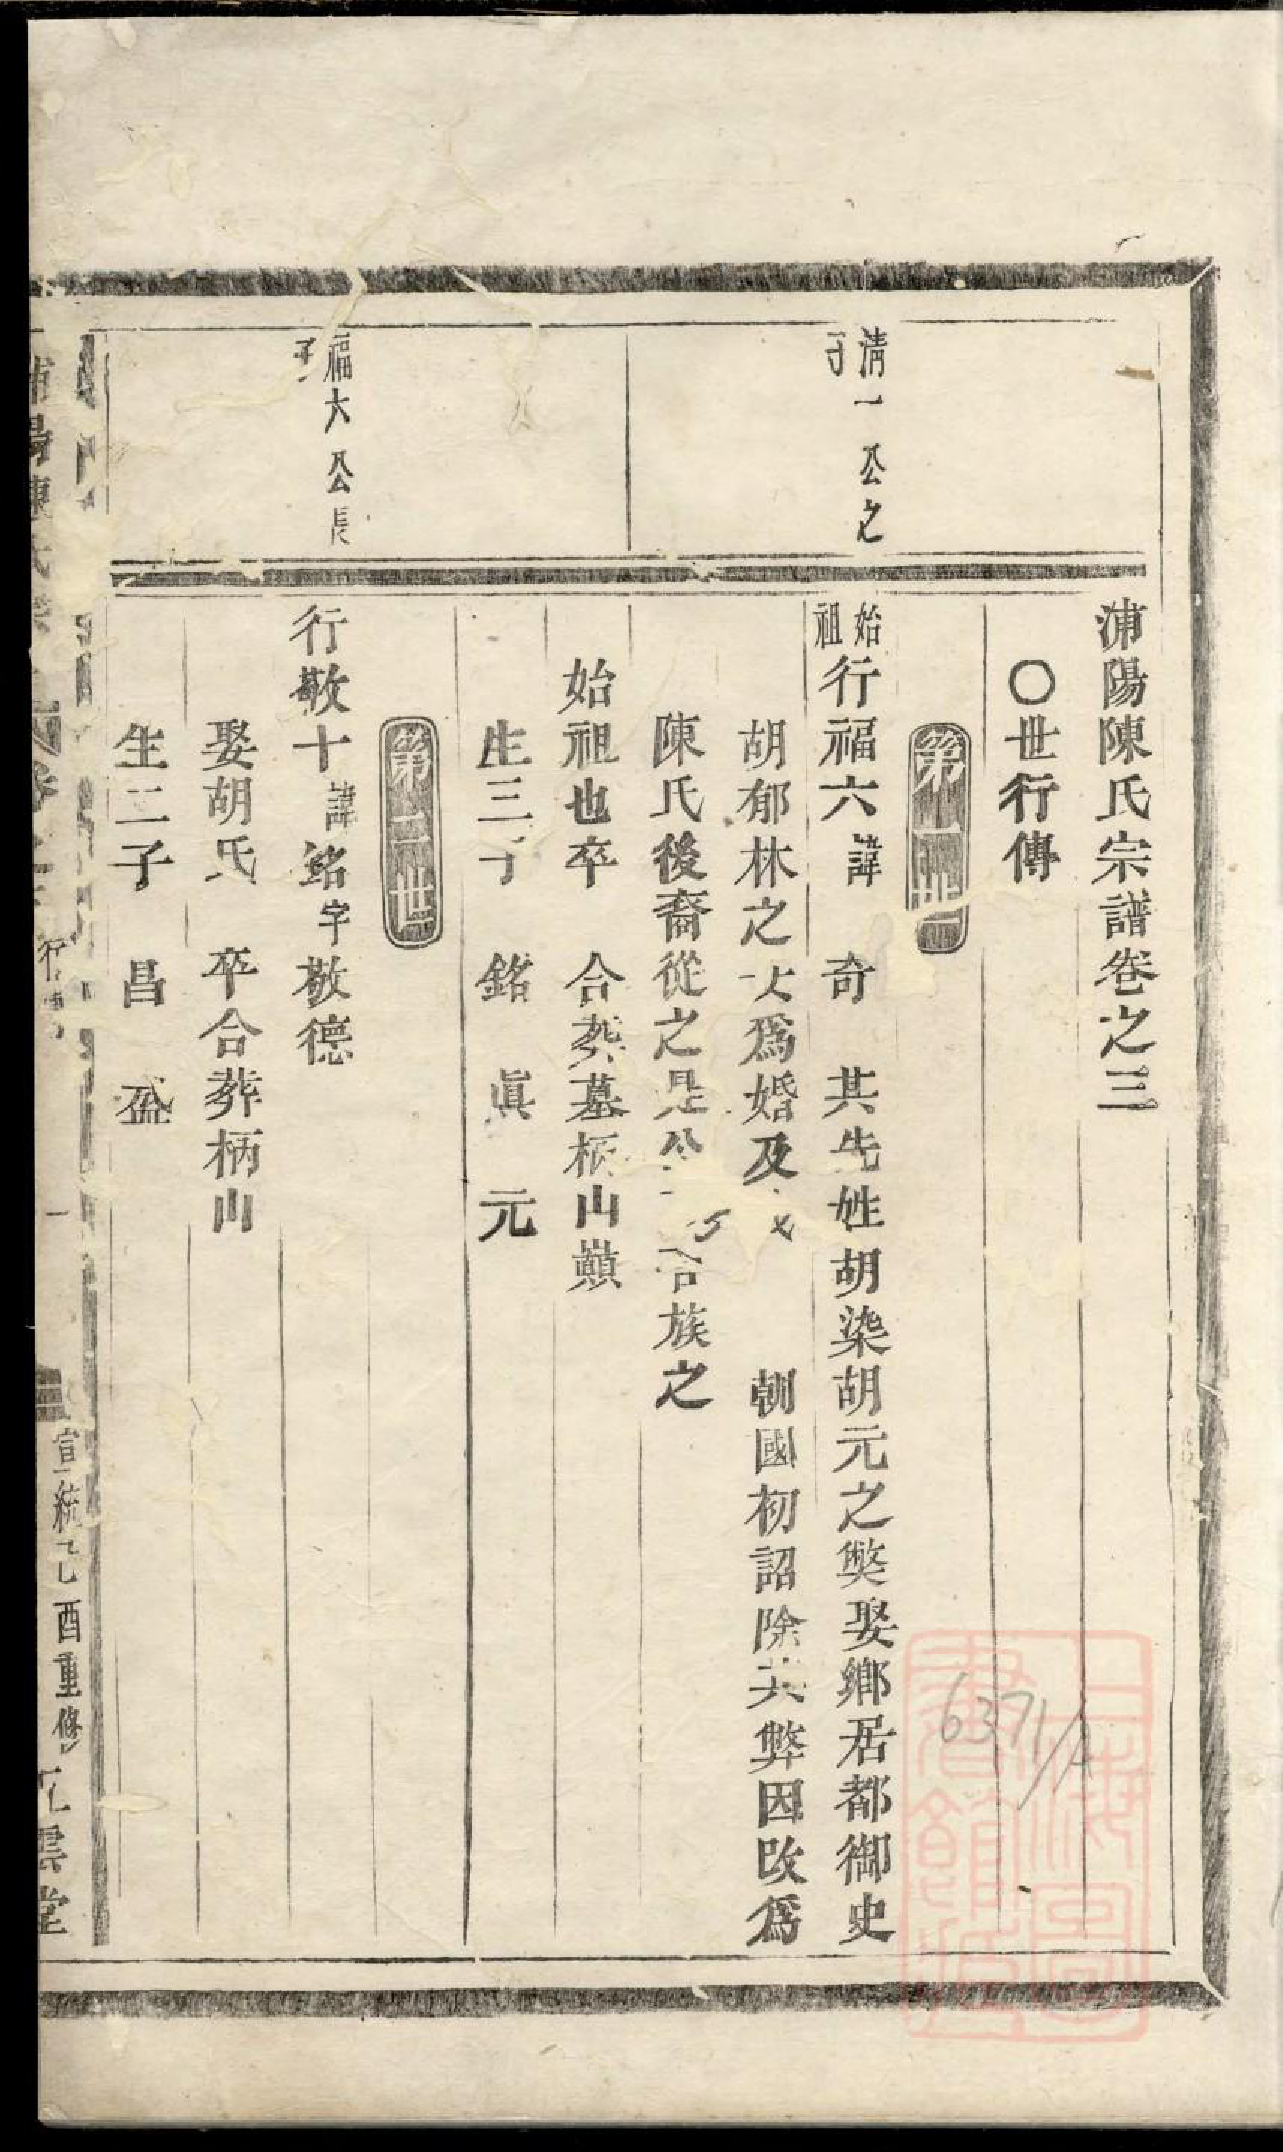 浦陽陳氏宗譜卷之三
〇世行傳
第一世
清一公之
子
始祖行福六諱 奇 其先姓胡染胡元之獘娶鄉居都御史
胡郁林之女爲婚及 朝國初詔除其弊因改爲
陳氏後裔從之是公 合族之
始祖也卒 合葬墓柄山巔
生三子 銘 眞 元
第二世
福六公長
子
行敬十諱銘字敬德
娶胡氏 卒合葬柄山
生二子 昌 盈
浦陽陳氏宗譜 卷之三 行傳 一 宣統乙酉重修 五雲堂
6371/A
上海圖書館藏